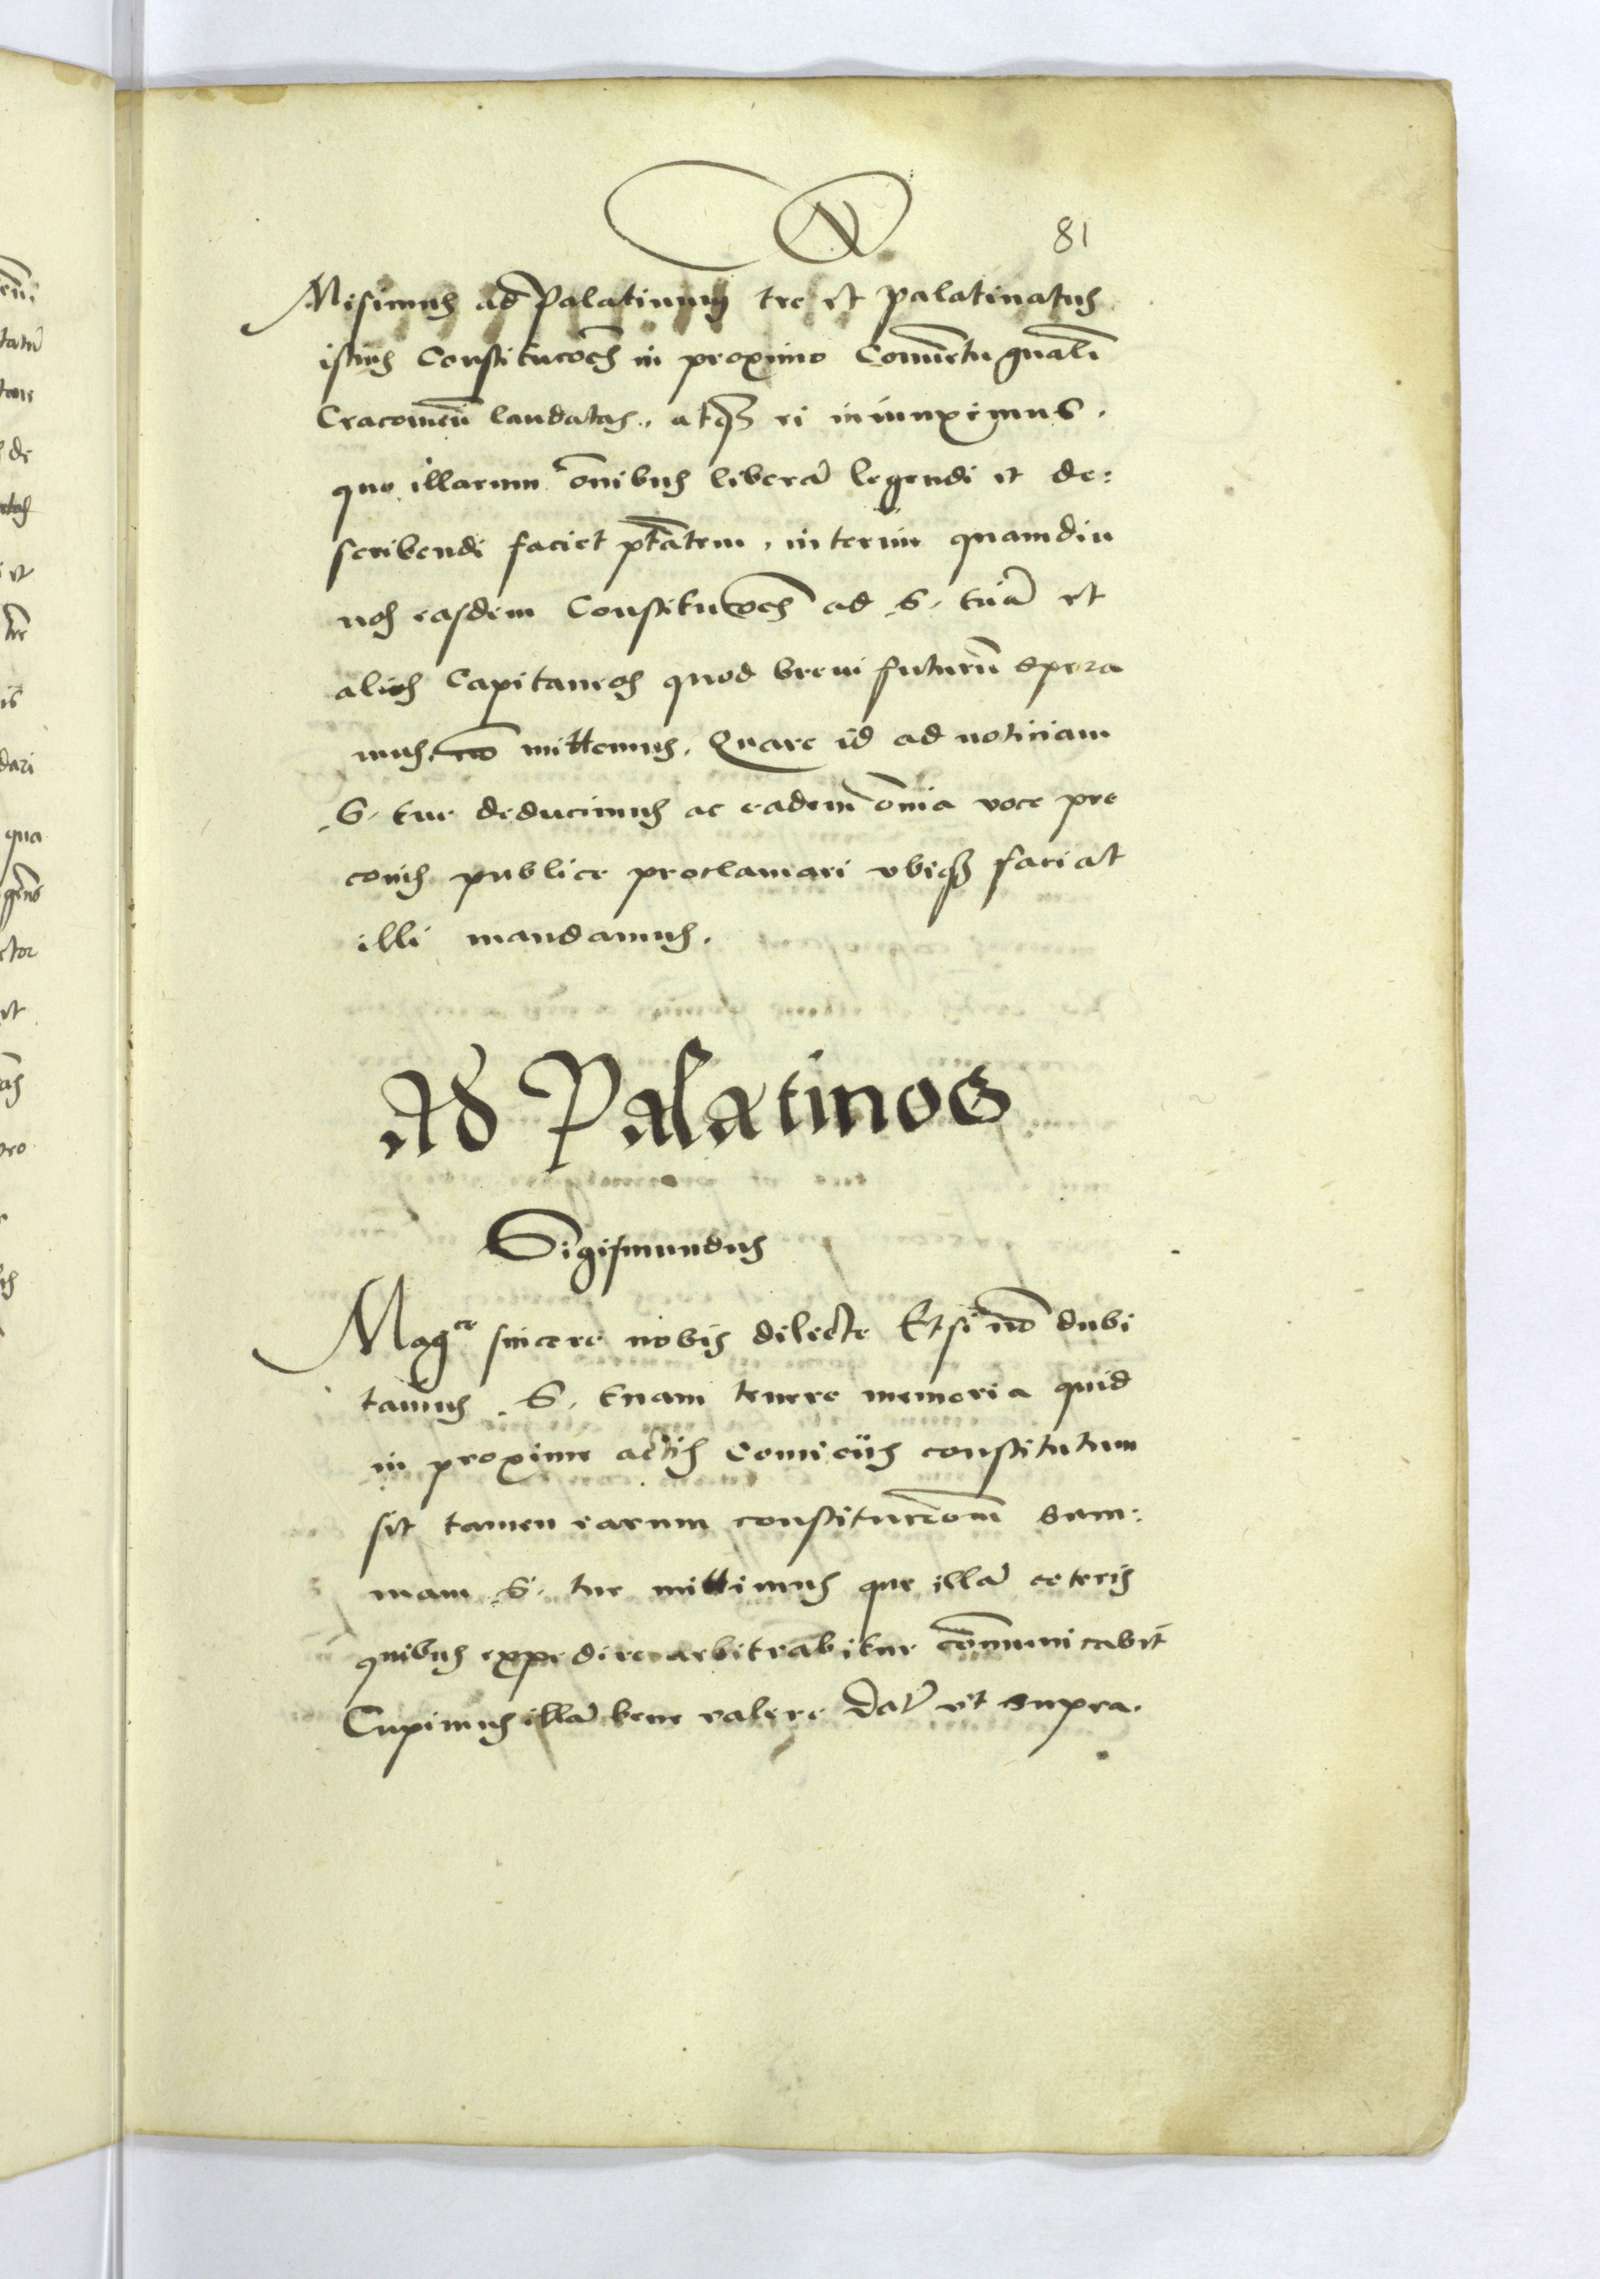 81
Misimus ad Palatinum tre et palatinatus
istius Constitucōes in proximo Conuētu gnāli
Cracouieñ laudatas, atq3 ei iniunximus,
quo illarum om̄ibus liberā legendi et de:
scribendi faciet ptātem, interim quamdiu
nos easdem Constitucōes ad S. tuā et
alios Capitaneos quod breui futurū spera
mus nō mittemus. Quare id ad noticiam
S. tue deducimus ac eadem om̄ia voce pre
conis publice proclamari vbiq3 faciat
illi mandamus.
Ad Palatinos
Sigismundus
Magce sincere nobis dilecte Etsi nō dubi
tamus S. tuam tenere memoria quid
in proxime actis Comicijs constitutum
sit tamen earum constitucionū sum:
mam S. tue mittimus que illā ceteris
quibus expedire arbitrabitur cōmunicabit
Cupimus illā bene valere Dat̄ vt supra.